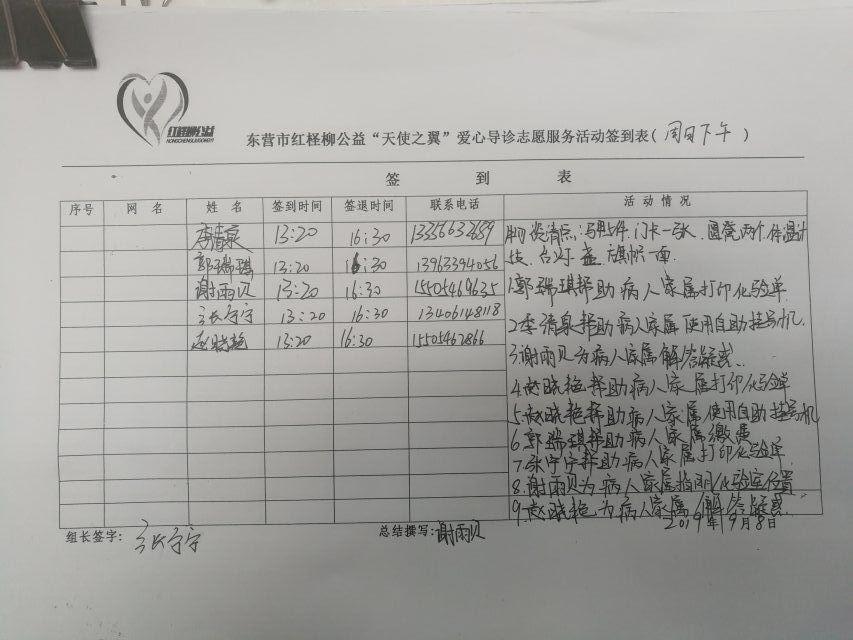 红柽柳公益
HONGCHENGLIUGONGYI
东营市红柽柳公益“天使之翼”爱心导诊志愿服务活动签到表(周日下午)
签 到 表
序号 网 名 姓 名 签到时间 签退时间 联系电话 活动情况
李清泉 13:20 16:30 13356632689
郭瑞琪 13:20 16:30 13963394056
谢雨贝 13:20 16:30 15505469635
张宁宁 13:20 16:30 13406148118
赵晓艳 13:20 16:30 15505462866
物资清点:马甲5件.门卡一张.圆凳两个.体温计
台灯一盏.旗帜一面.
1.郭瑞琪帮助病人家属打印化验单
2.李清泉帮助病人家属使用自助挂号机.
3.谢雨贝为病人家属解答疑惑.
4.赵晓艳帮助病人家属打印化验单
5.赵晓艳帮助病人家属使用自助挂号机
6.郭瑞琪帮助病人家属缴费
7.张宁宁帮助病人家属打印化验单
8.谢雨贝为病人家属指明化验室位置
9.赵晓艳为病人家属解答疑惑.
2019年9月8日
组长签字: 张宁宁 总结撰写: 谢雨贝